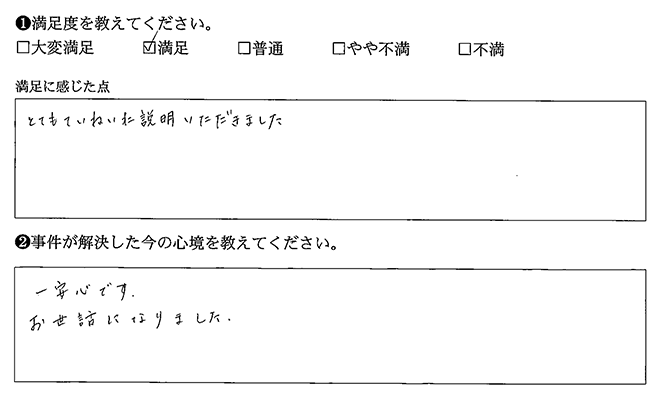 ❶満足度を教えてください。
□大変満足 ☑満足 □普通 □やや不満 □不満
満足に感じた点
とてもていねいに説明いただきました
❷事件が解決した今の心境を教えてください。
一安心です.
お世話になりました.